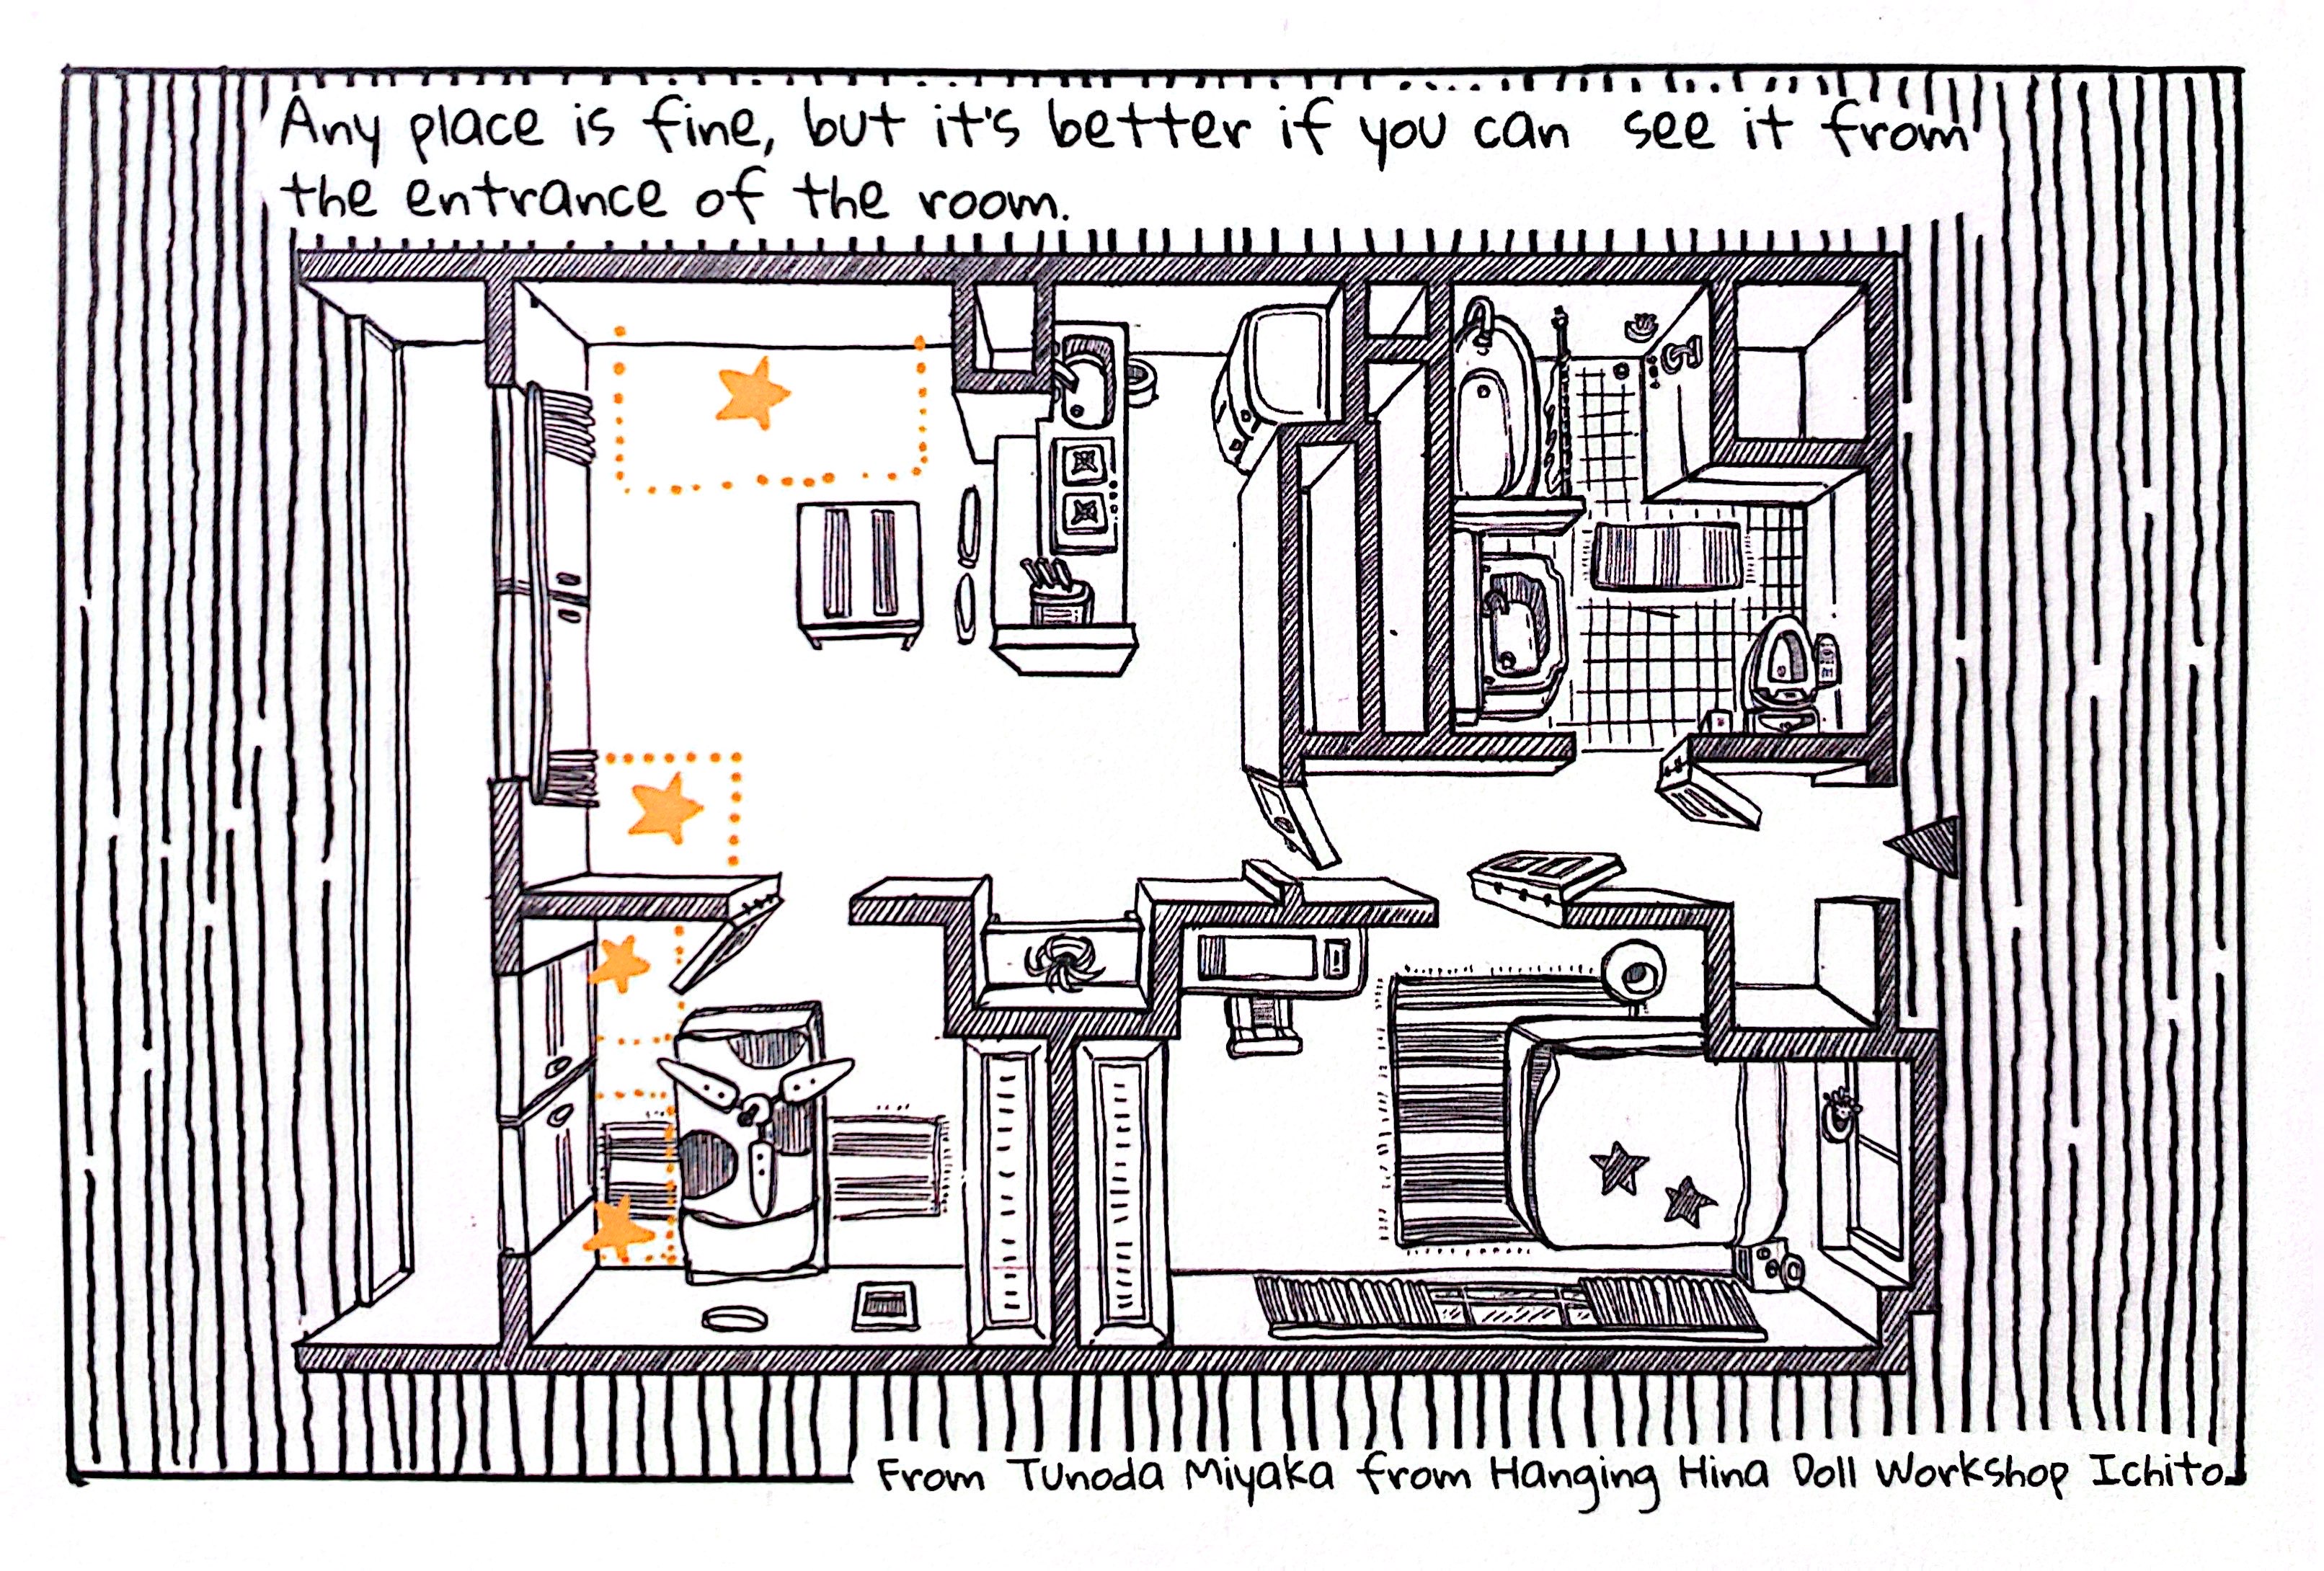 Any place is fine, but it's better if you can see it from
the entrance of the room.
From Tunoda Miyaka from Hanging Hina Doll Workshop Ichito